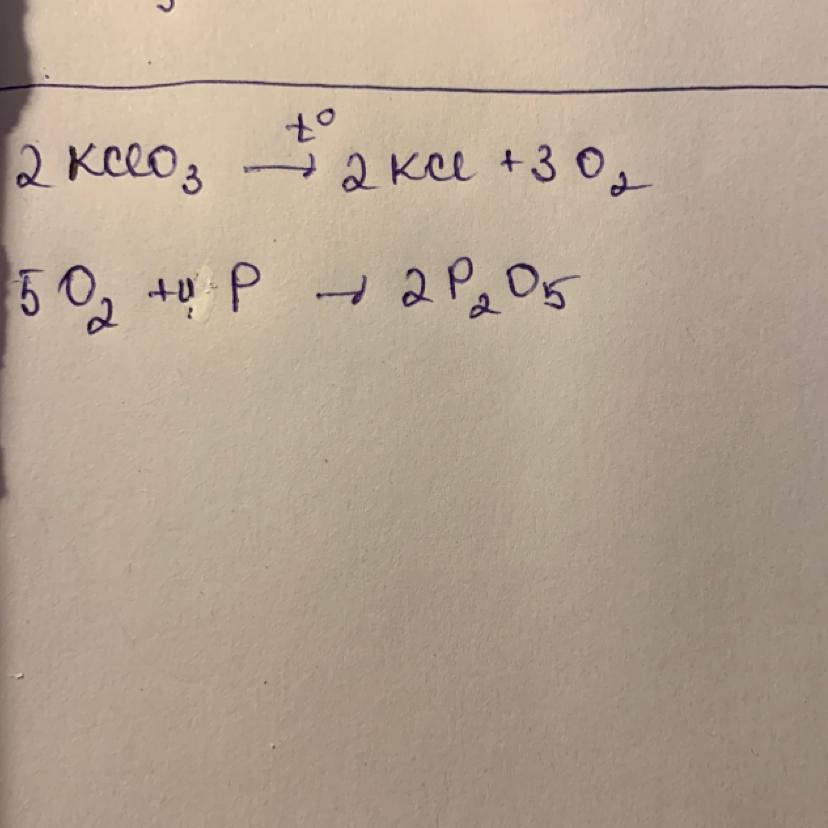 2 KClO₃ →(t°) 2 KCl + 3 O₂
5 O₂ + 4 P → 2 P₂O₅